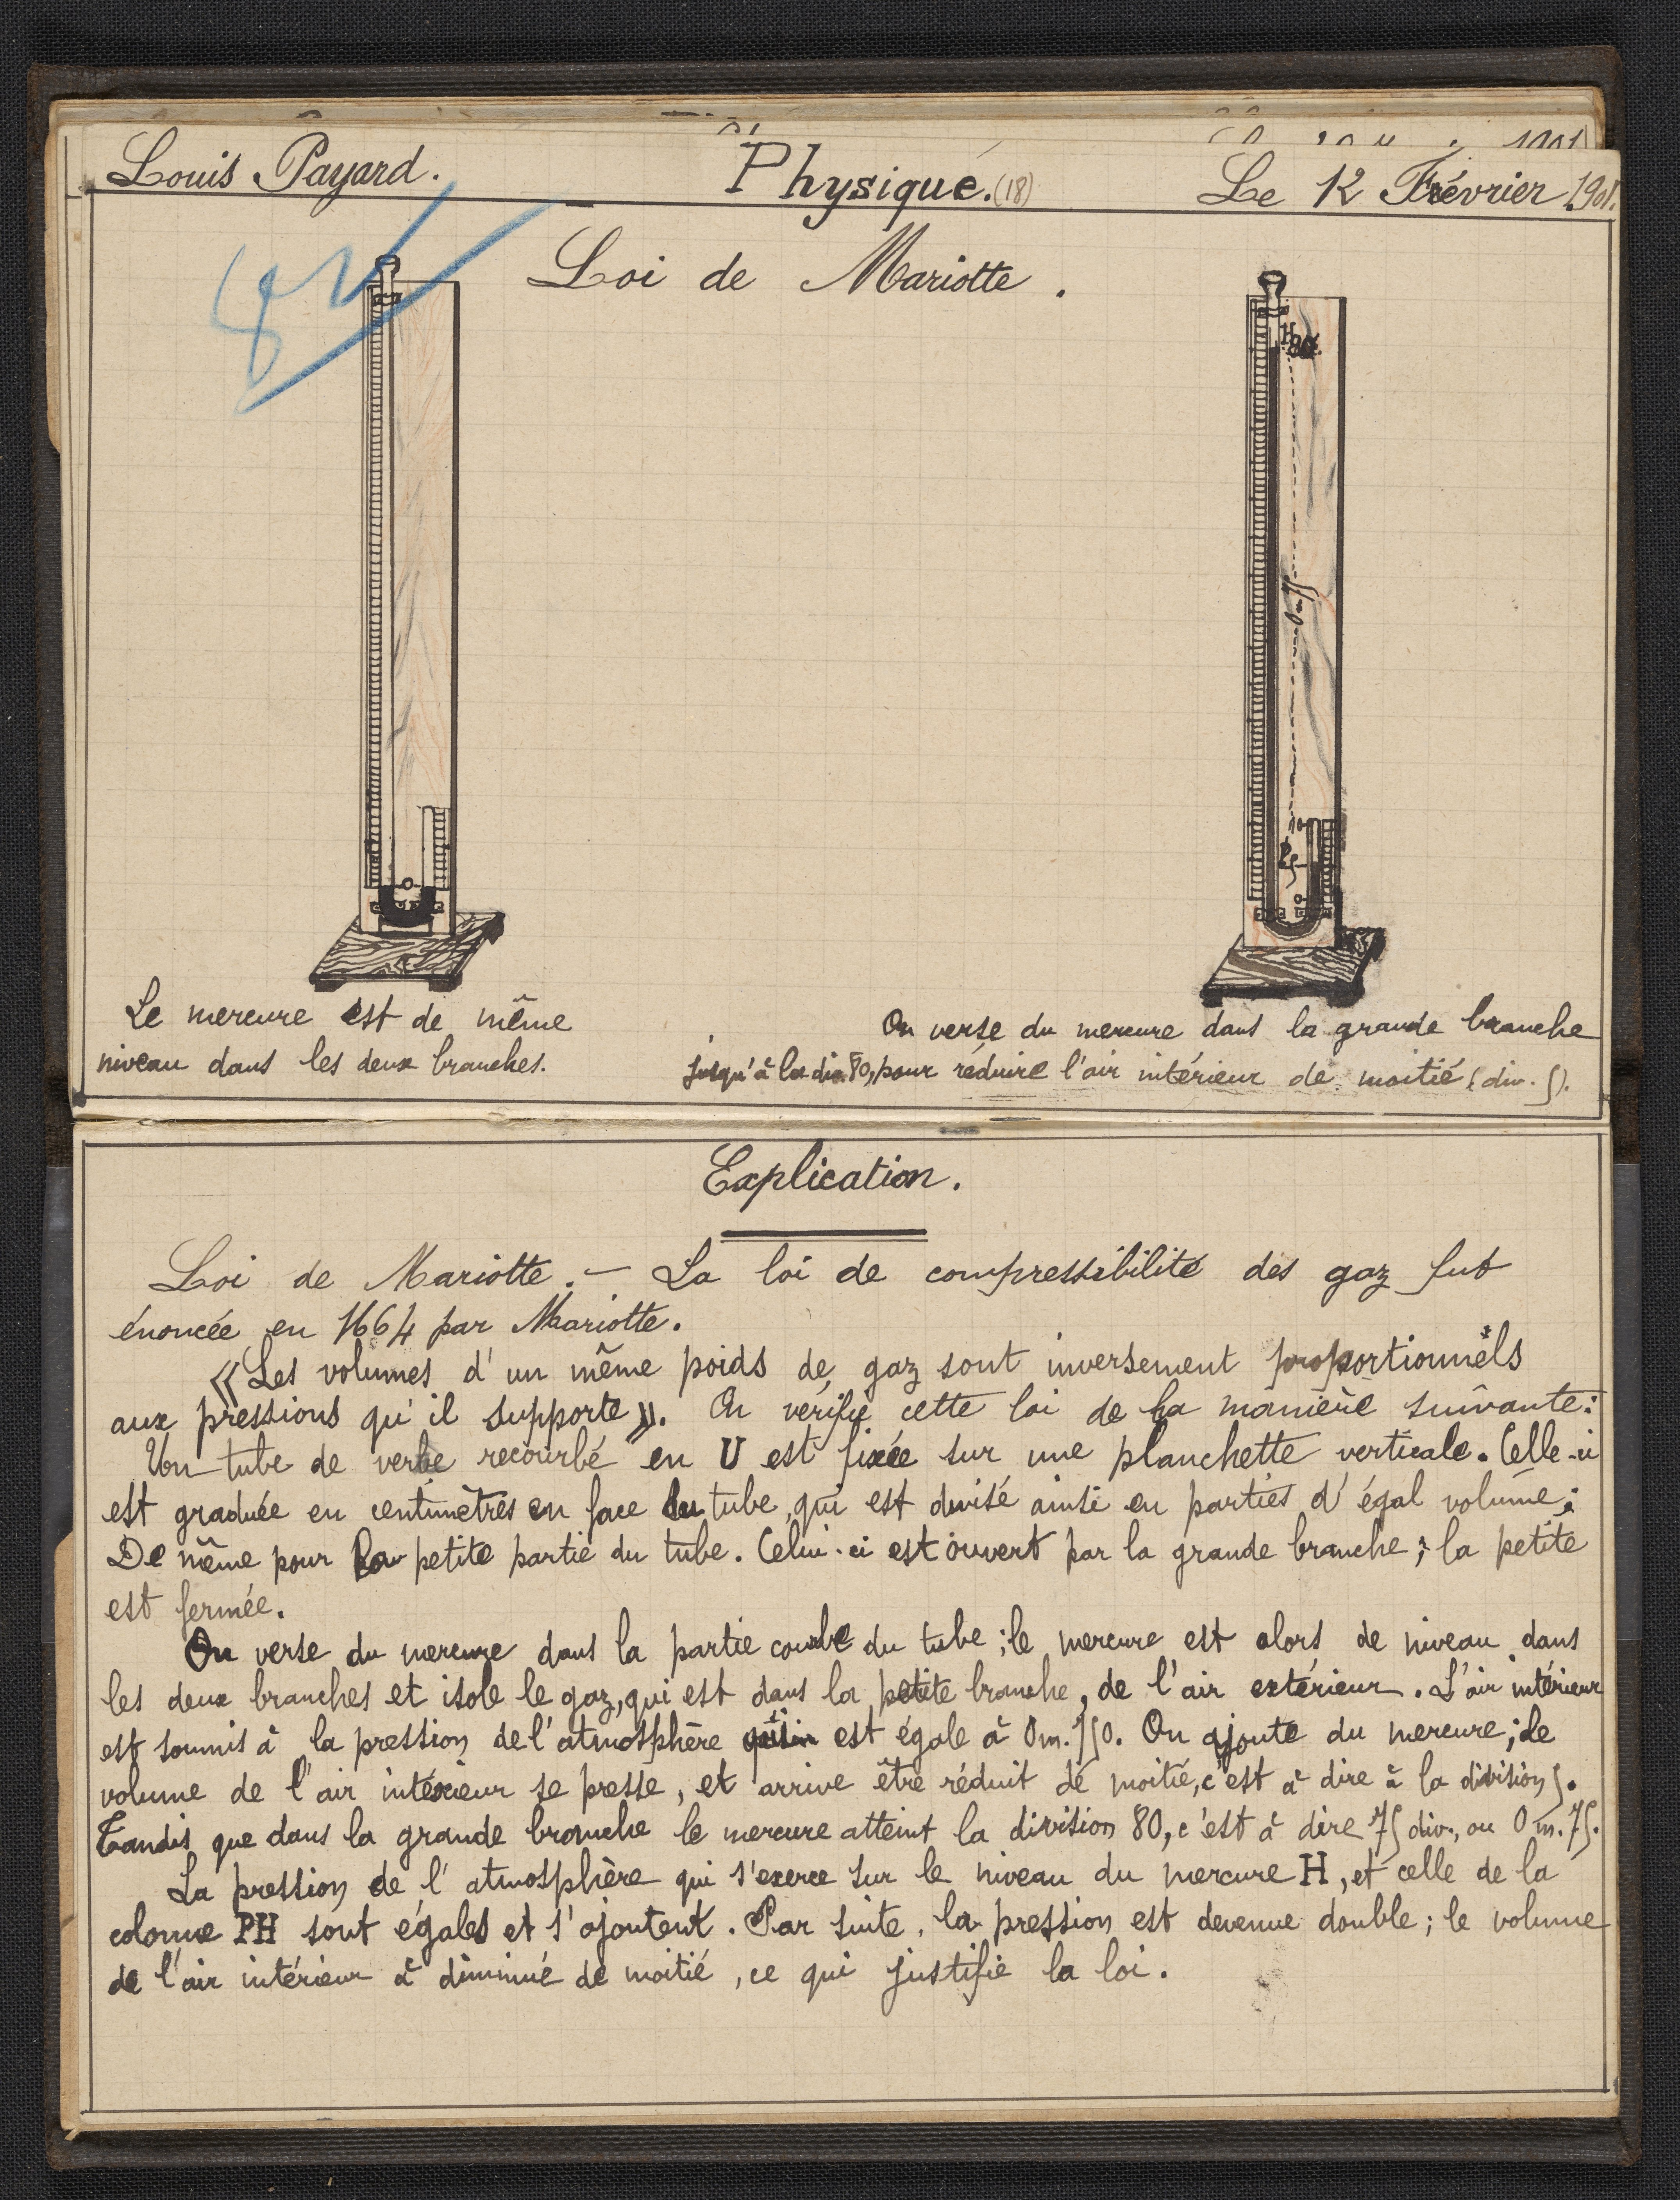 Louis Payard.
Physique. (18)
Le 12 Février 1901.
Loi de Mariotte.
H
80
0m75
10
P
5
0
0
Le mercure est de même
niveau dans les deux branches.
On verse du mercure dans la grande branche
jusqu'à la div. 80, pour réduire l'air intérieur de moitié (div. 5).
Explication.
Loi de Mariotte. — La loi de compressibilité des gaz fut
énoncée en 1664 par Mariotte.
« Les volumes d'un même poids de gaz sont inversement proportionnels
aux pressions qu'il supporte ». On vérifie cette loi de la manière suivante :
Un tube de verre recourbé en U est fixée sur une planchette verticale. Celle-ci
est graduée en centimètres en face du tube, qui est divisé ainsi en parties d'égal volume ;
De même pour la petite partie du tube. Celui-ci est ouvert par la grande branche ; la petite
est fermée.
On verse du mercure dans la partie courbe du tube ; le mercure est alors de niveau dans
les deux branches et isole le gaz, qui est dans la petite branche, de l'air extérieur. L'air intérieur
est soumis à la pression de l'atmosphère qui est égale à 0m.750. On ajoute du mercure ; le
volume de l'air intérieur se presse, et arrive être réduit de moitié, c'est à dire à la division 5.
Tandis que dans la grande branche le mercure atteint la division 80, c'est à dire 75 div., ou 0m.75.
La pression de l'atmosphère qui s'exerce sur le niveau du mercure H, et celle de la
colonne PH sont égales et s'ajoutent. Par suite, la pression est devenue double ; le volume
de l'air intérieur à diminué de moitié, ce qui justifie la loi.